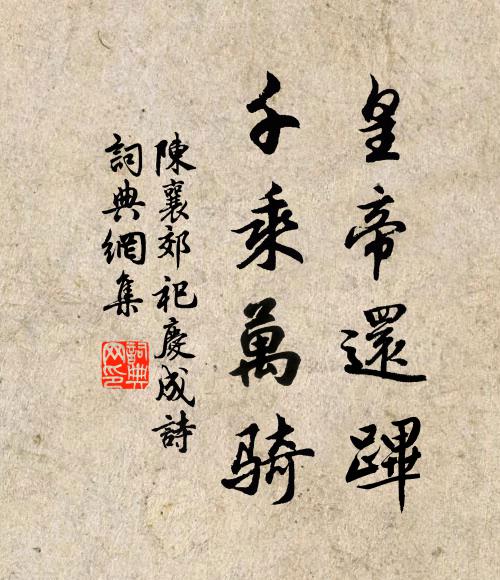 皇帝還蹕
千乘萬騎
陳襄郊祀慶成詩
詞典網集
詞典
网印